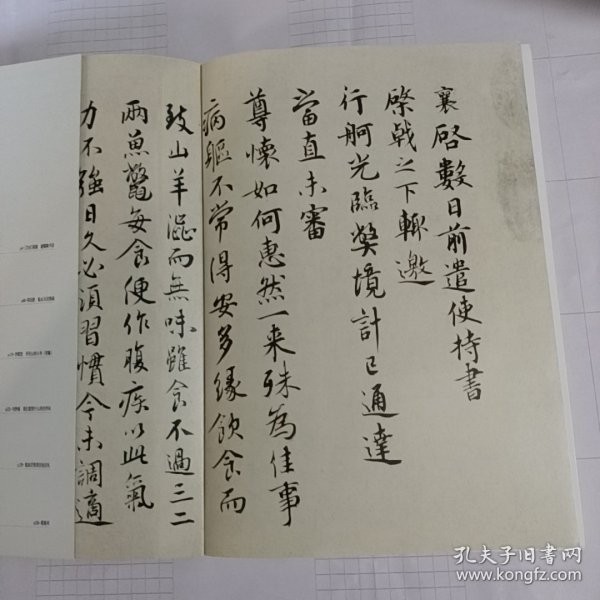 襄啓數日前遣使持書
棨戟之下輒邀
行舸光臨獘境計已通達
當直未審
尊懷如何惠然一来殊為佳事
病軀不常得安多緣飲食而
致山羊澀而無味雖食不過三二
兩魚鼈每食便作腹疾以此氣
力不強日久必須習慣今未調適
孔夫子旧书网
www.kongfz.com